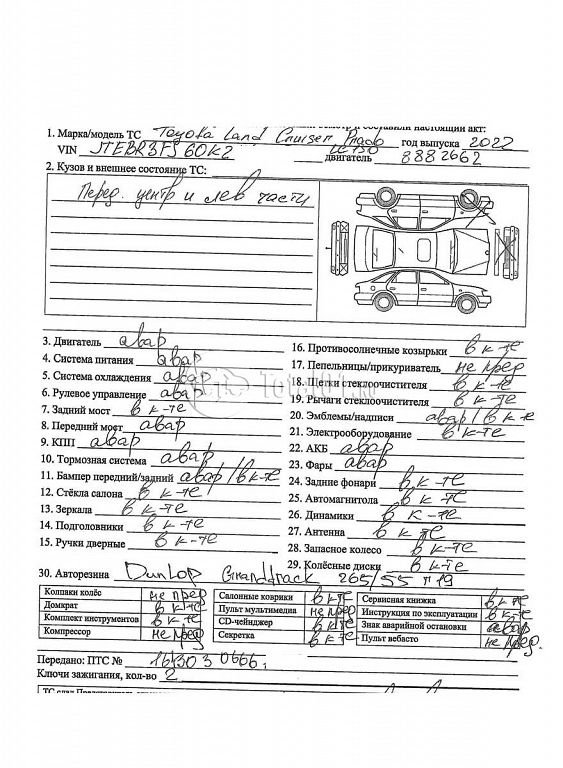 составили настоящий акт:
1. Марка/модель ТС Toyota Land Cruiser Prado год выпуска 2022
VIN JTEBR3FJ60K2 LC150 двигатель 8882662
2. Кузов и внешнее состояние ТС:
Перед. центр и лев части
3. Двигатель авар
4. Система питания авар
5. Система охлаждения авар
6. Рулевое управление авар
7. Задний мост в к-те
8. Передний мост авар
9. КПП авар
10. Тормозная система авар
11. Бампер передний/задний авар/в к-те
12. Стёкла салона в к-те
13. Зеркала в к-те
14. Подголовники в к-те
15. Ручки дверные в к-те
16. Противосолнечные козырьки в к-те
17. Пепельницы/прикуриватель не пред
18. Щетки стеклоочистителя в к-те
19. Рычаги стеклоочистителя в к-те
20. Эмблемы/надписи авар/в к-те
21. Электрооборудование в к-те
22. АКБ авар
23. Фары авар
24. Задние фонари в к-те
25. Автомагнитола в к-те
26. Динамики в к-те
27. Антенна в к-те
28. Запасное колесо в к-те
29. Колёсные диски в к-те
30. Авторезина Dunlop Grandtrack 265/55 r19
Колпаки колёс не пред Салонные коврики в к-те Сервисная книжка в к-те
Домкрат в к-те Пульт мультимедиа не пред Инструкция по эксплуатации в к-те
Комплект инструментов в к-те CD-чейнджер в к-те Знак аварийной остановки авар
Компрессор не пред Секретка в к-те Пульт вебасто не пред.
Передано: ПТС № 164303 0666,
Ключи зажигания, кол-во 2